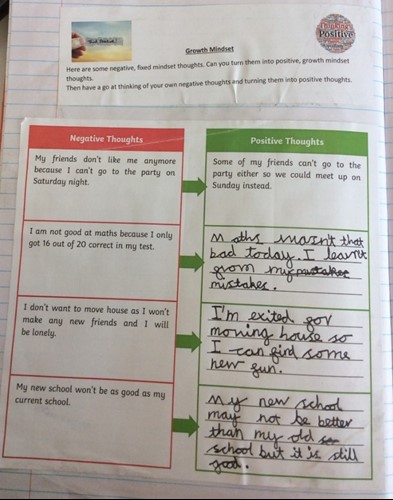 Growth Mindset
Thinking
Positive
Here are some negative, fixed mindset thoughts. Can you turn them into positive, growth mindset
thoughts.
Then have a go at thinking of your own negative thoughts and turning them into positive thoughts.
Negative Thoughts
Positive Thoughts
My friends don't like me anymore
because I can't go to the party on
Saturday night.
Some of my friends can't go to the
party either so we could meet up on
Sunday instead.
I am not good at maths because I only
got 16 out of 20 correct in my test.
Maths wasn't that
bad today. I learnt
from my mistakes
mistakes.
I don't want to move house as I won't
make any new friends and I will
be lonely.
I'm exited for
moving house so
I can find some
new fun.
My new school won't be as good as my
current school.
My new school
may not be better
than my old
school but it is still
good.